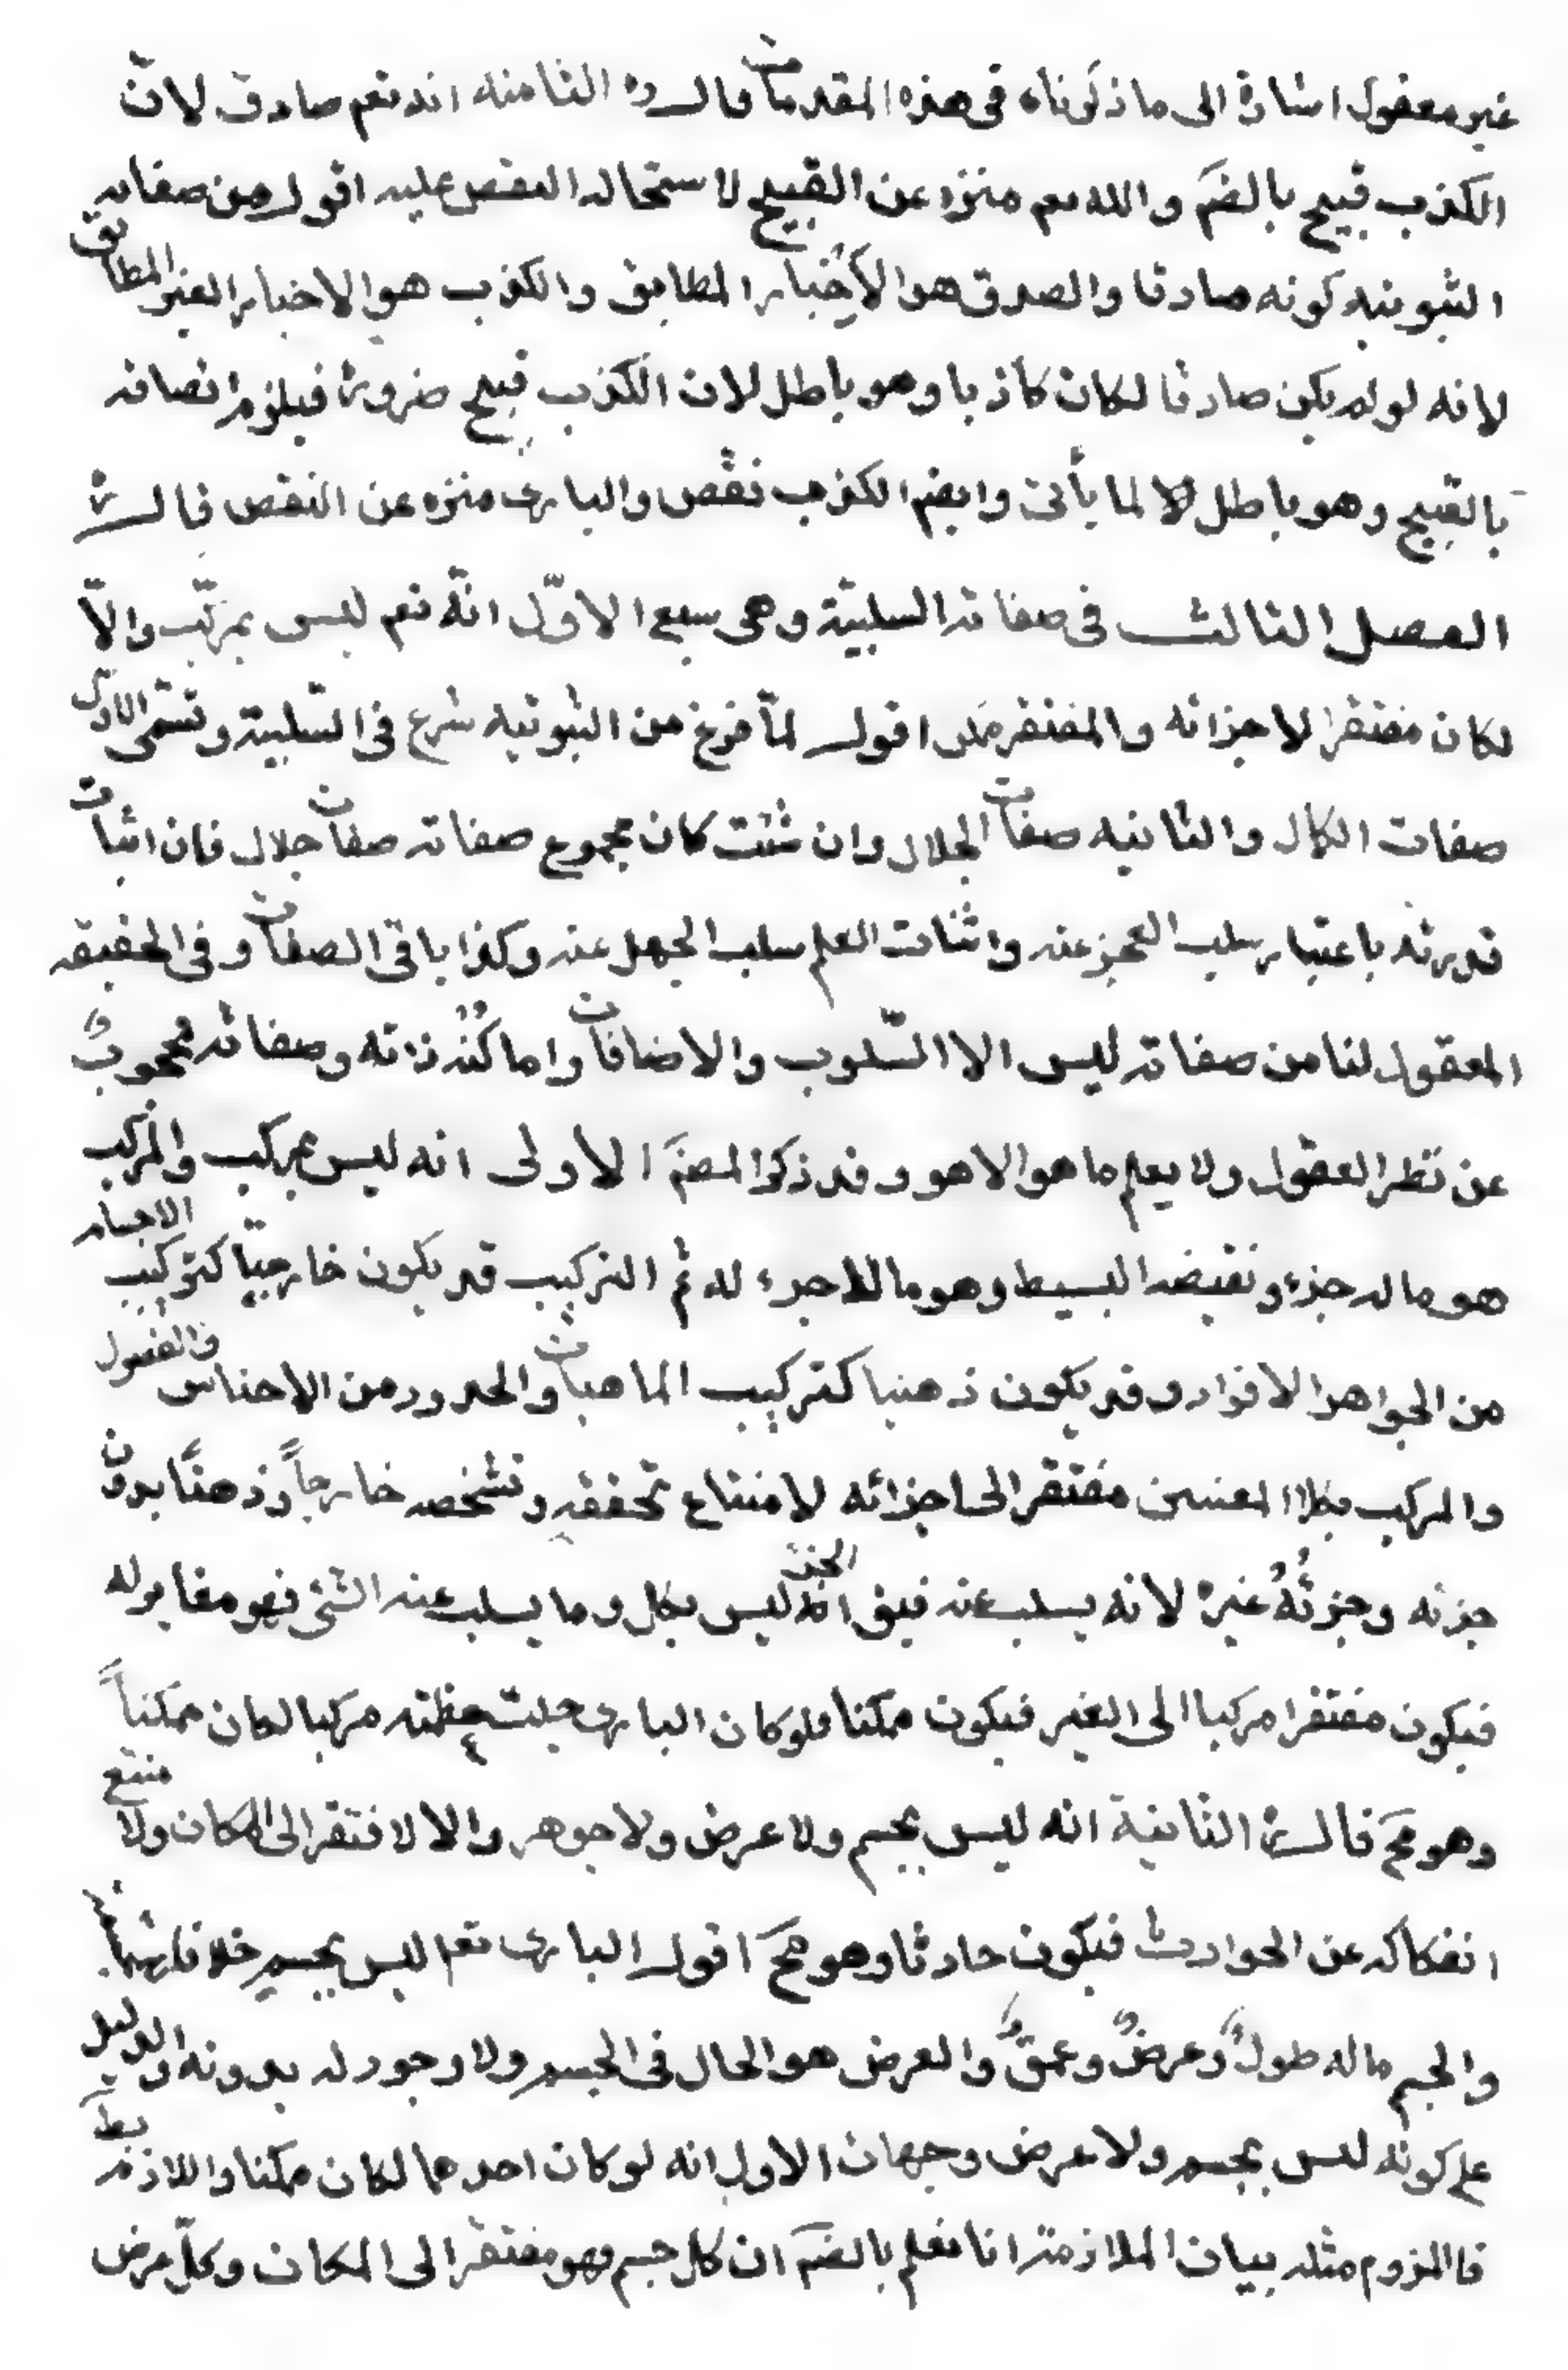 غير معقول اشارة الى ما ذكرناه فى هذه المقدمات قال ره الثامنه انه تعم صادق لانّ
الكذب قبيح بالضمَ والله تعم منزه عن القبيح لاستحاله النقص عليه اقول من صفاته
الثبوتيه كونه صادقا والصدق هو الأخبار المطابق والكذب هو الاخبار الغير المطابق
لانه لو لم يكن صادقا لكان كاذبا وهو باطل لان الكذب قبيح ضرورة فيلزم اتصافه
بالقبيح وهو باطل لما يأتى وايضم الكذب نقص والبارى منزه عن النقص قال ره
الفصل الثالث فى صفاته السلبيّة وهى سبع الاوّل انّه تعم ليس بمركّب والّا
لكان مفتقرا لاجزائه والمفتقر ممكن اقول لمّا فرغ من الثبوتيه شرع فى السّلبية وتسّمى الاول
صفات الكمال والثانيه صفات الجلال وان شئت كان مجموع صفاته صفات جلال فان اثبات
قدرته باعتبار سلب العجز عنه واثبات العلم سلب الجهل عنه وكذا باقى الصفات وفى الحقيقه
المعقول لنا من صفاته ليس الا السّلوب والاضافات واما كُنْه ذاته وصفاته محجوبٌ
عن نظر العقول ولا يعلم ما هو الا هو وقد ذكر المصَم الأولى انه ليس بمركب والمركب
هو ما له جزء ونقيضه البسيط وهو ما لا جزء له ثم التركيب قد يكون خارجيّا كتركيب الاجسام
من الجواهر الافراد وقد يكون ذهنيا كتركيب الماهيات والحدود من الاجناس والفصول
والمركب بكلا المعنيين مفتقر الى اجزائه لامتناع تحققه وتشخصه خارجاً وذهنًا بدون
جزئه وجزئُهُ غيره لانه يسلب عنه فيق الجزء ليس بكل وما يسلب عنه الشئ فهو مغاير له
فيكون مفتقرا مركبا الى الغير فيكون ممكنا فلو كان البارى جلت عظمته مركبا لكان ممكناً
وهو مَح قال ره الثانية انه ليس بجسم ولا عرض ولا جوهر والا لافتقر الى المكان ولامتنع
انفكاكه عن الحوادث فيكون حادثا وهو مَح اقول البارى تعم ليس بجسم خلافا
والجسم ما له طولٌ وعرضٌ وعمقٌ والعرض هو الحال فى الجسم ولا وجود له بدونه والدليل
على كونه ليس بجسم ولا عرض وجهان الاول انه لو كان احدهما لكان ممكنا واللازم بط
فالملزوم مثله بيان الملازمة انا نعلم بالضمَ ان كل جسم فهو مفتقر الى المكان وكلّ عرض